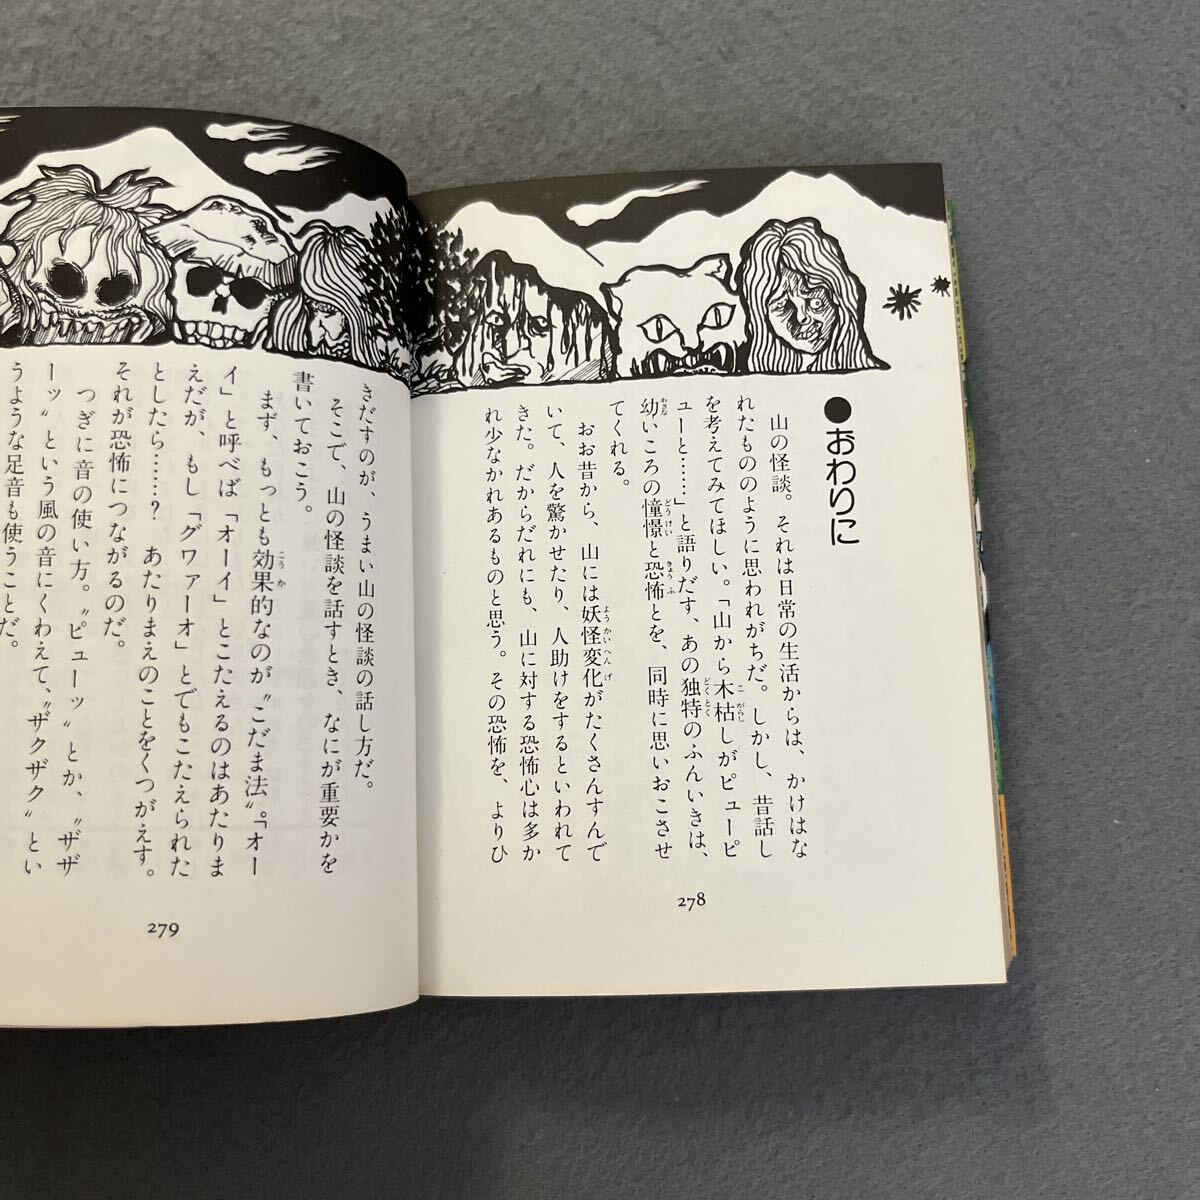 ●おわりに
山の怪談。それは日常の生活からは、かけはな
れたもののように思われがちだ。しかし、昔話し
を考えてみてほしい。「山から木枯しがピューピ
ューと……」と語りだす、あの独特のふんいきは、
幼いころの憧憬と恐怖とを、同時に思いおこさせ
てくれる。
おお昔から、山には妖怪変化がたくさんすんで
いて、人を驚かせたり、人助けをするといわれて
きた。だからだれにも、山に対する恐怖心は多か
れ少なかれあるものと思う。その恐怖を、よりひ
278
きだすのが、うまい山の怪談の話し方だ。
そこで、山の怪談を話すとき、なにが重要かを
書いておこう。
まず、もっとも効果的なのが〝こだま法〟。「オー
イ」と呼べば「オーイ」とこたえるのはあたりま
えだが、もし「グワァーオ」とでもこたえられた
としたら……？　あたりまえのことをくつがえす。
それが恐怖につながるのだ。
つぎに音の使い方。〝ピューッ〟とか、〝ザザ
ーッ〟という風の音にくわえて、〝ザクザク〟とい
うような足音も使うことだ。
279